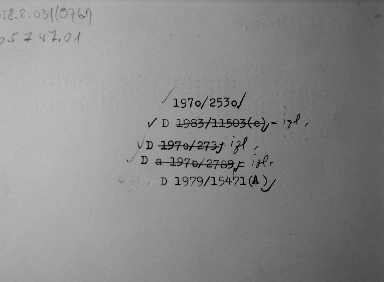 05747.01
1970/2530/
D 1983/11503(e), - izl,
D 1970/273, izl,
D a 1970/2789, izl.
D 1979/15471(A)